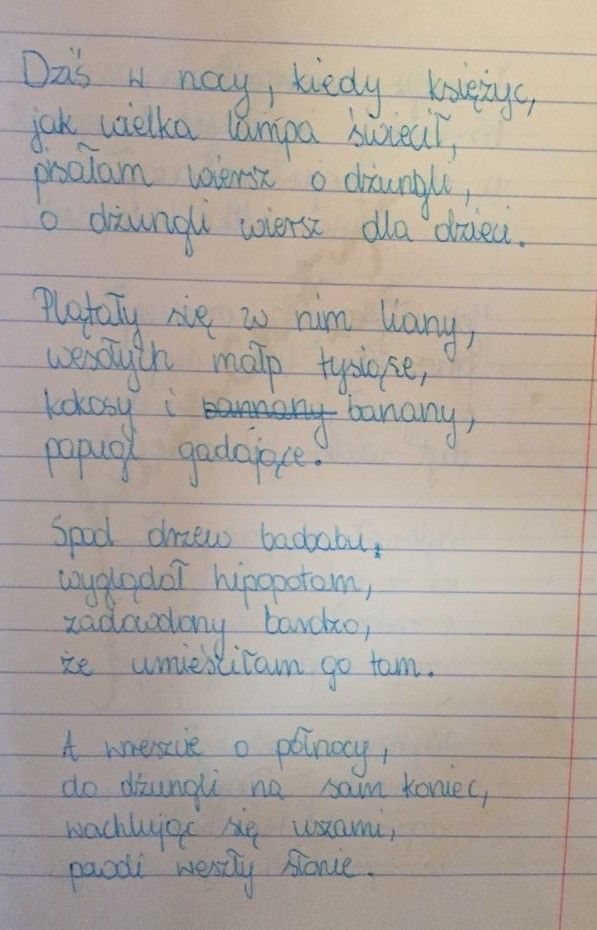 Dziś w nocy, kiedy księżyc,
jak wielka lampa świecił,
pisałam wiersz o dżungli,
o dżungli wiersz dla dzieci.
Plątały się w nim liany,
wesołych małp tysiące,
kokosy i bannany banany,
papugi gadające.
Spod drzew baobabu,
wyglądał hipopotam,
zadowolony bardzo,
że umieściłam go tam.
A wreszcie o północy,
do dżungli na sam koniec,
wachlując się uszami,
weszły słonie.